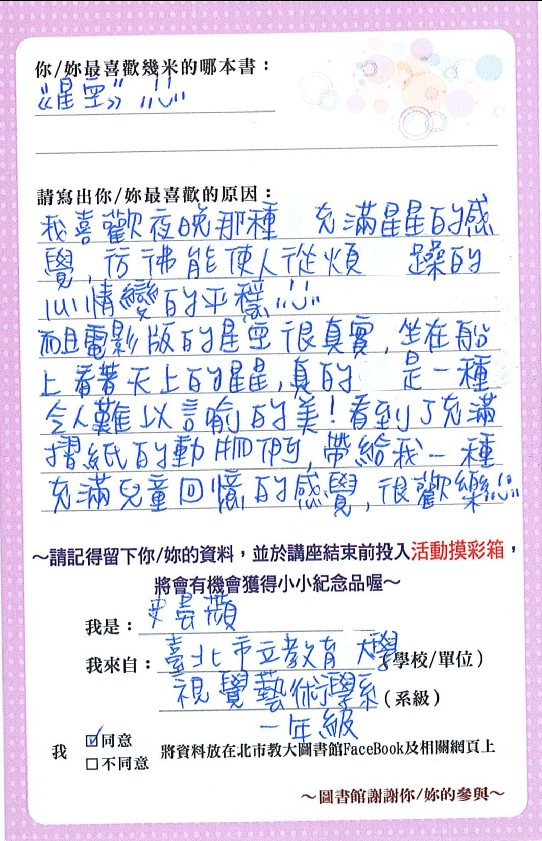 你/妳最喜歡幾米的哪本書：
《星空》
請寫出你/妳最喜歡的原因：
我喜歡夜晚那種 充滿星星的感
覺，彷彿能使人從煩 躁的
心情變的平穩
而且電影版的星空很真實，坐在船
上看著天上的星星，真的 是一種
令人難以言喻的美！看到了充滿
摺紙的動物們，帶給我一種
充滿兒童回憶的感覺，很歡樂
～請記得留下你/妳的資料，並於講座結束前投入活動摸彩箱，
將會有機會獲得小小紀念品喔～
我是：史
我來自：臺北市立教育大學(學校/單位)
視覺藝術學系(系級)
一年級
我 ☑同意
□不同意 將資料放在北市教大圖書館FaceBook及相關網頁上
～圖書館謝謝你/妳的參與～